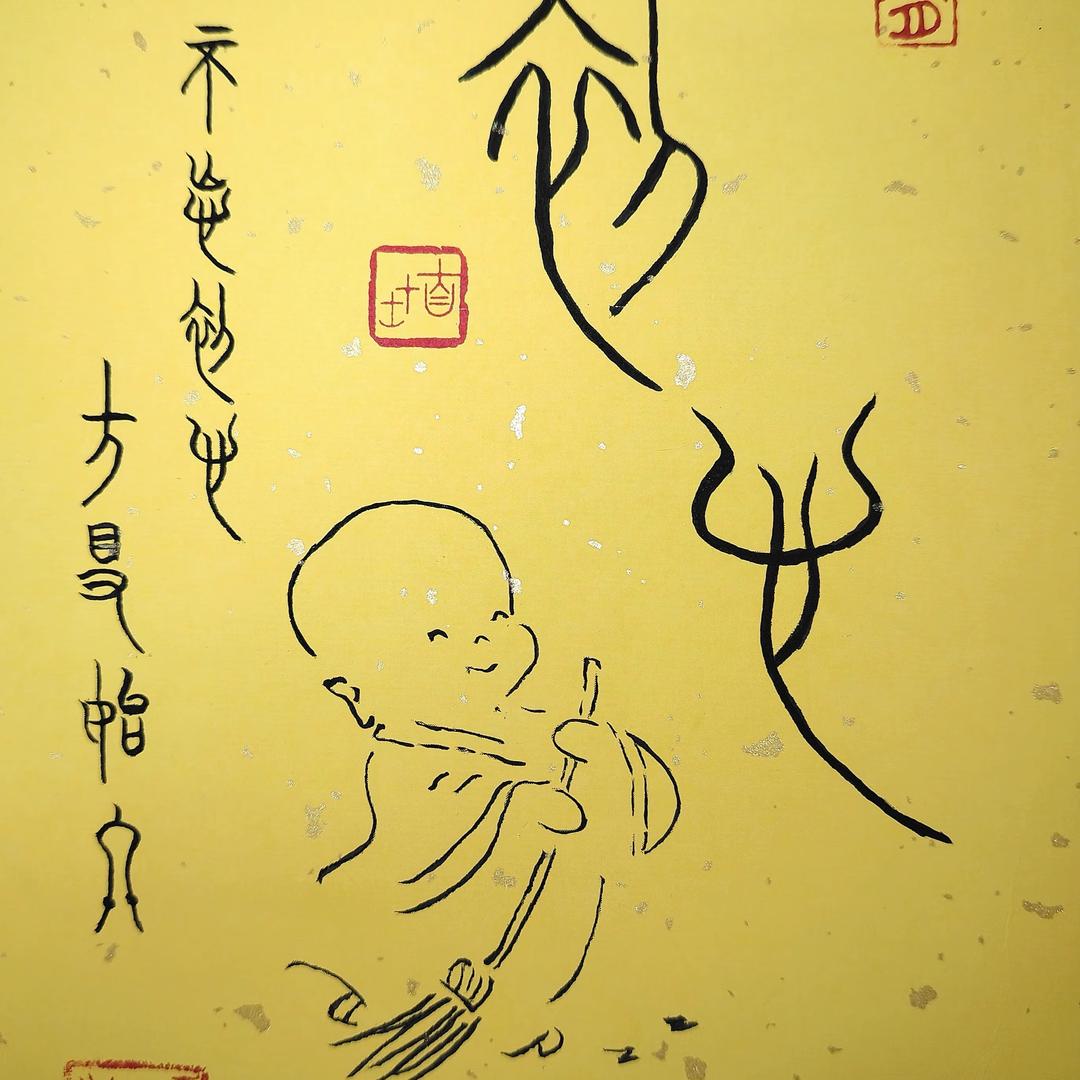 初心
不忘初心
方得始終